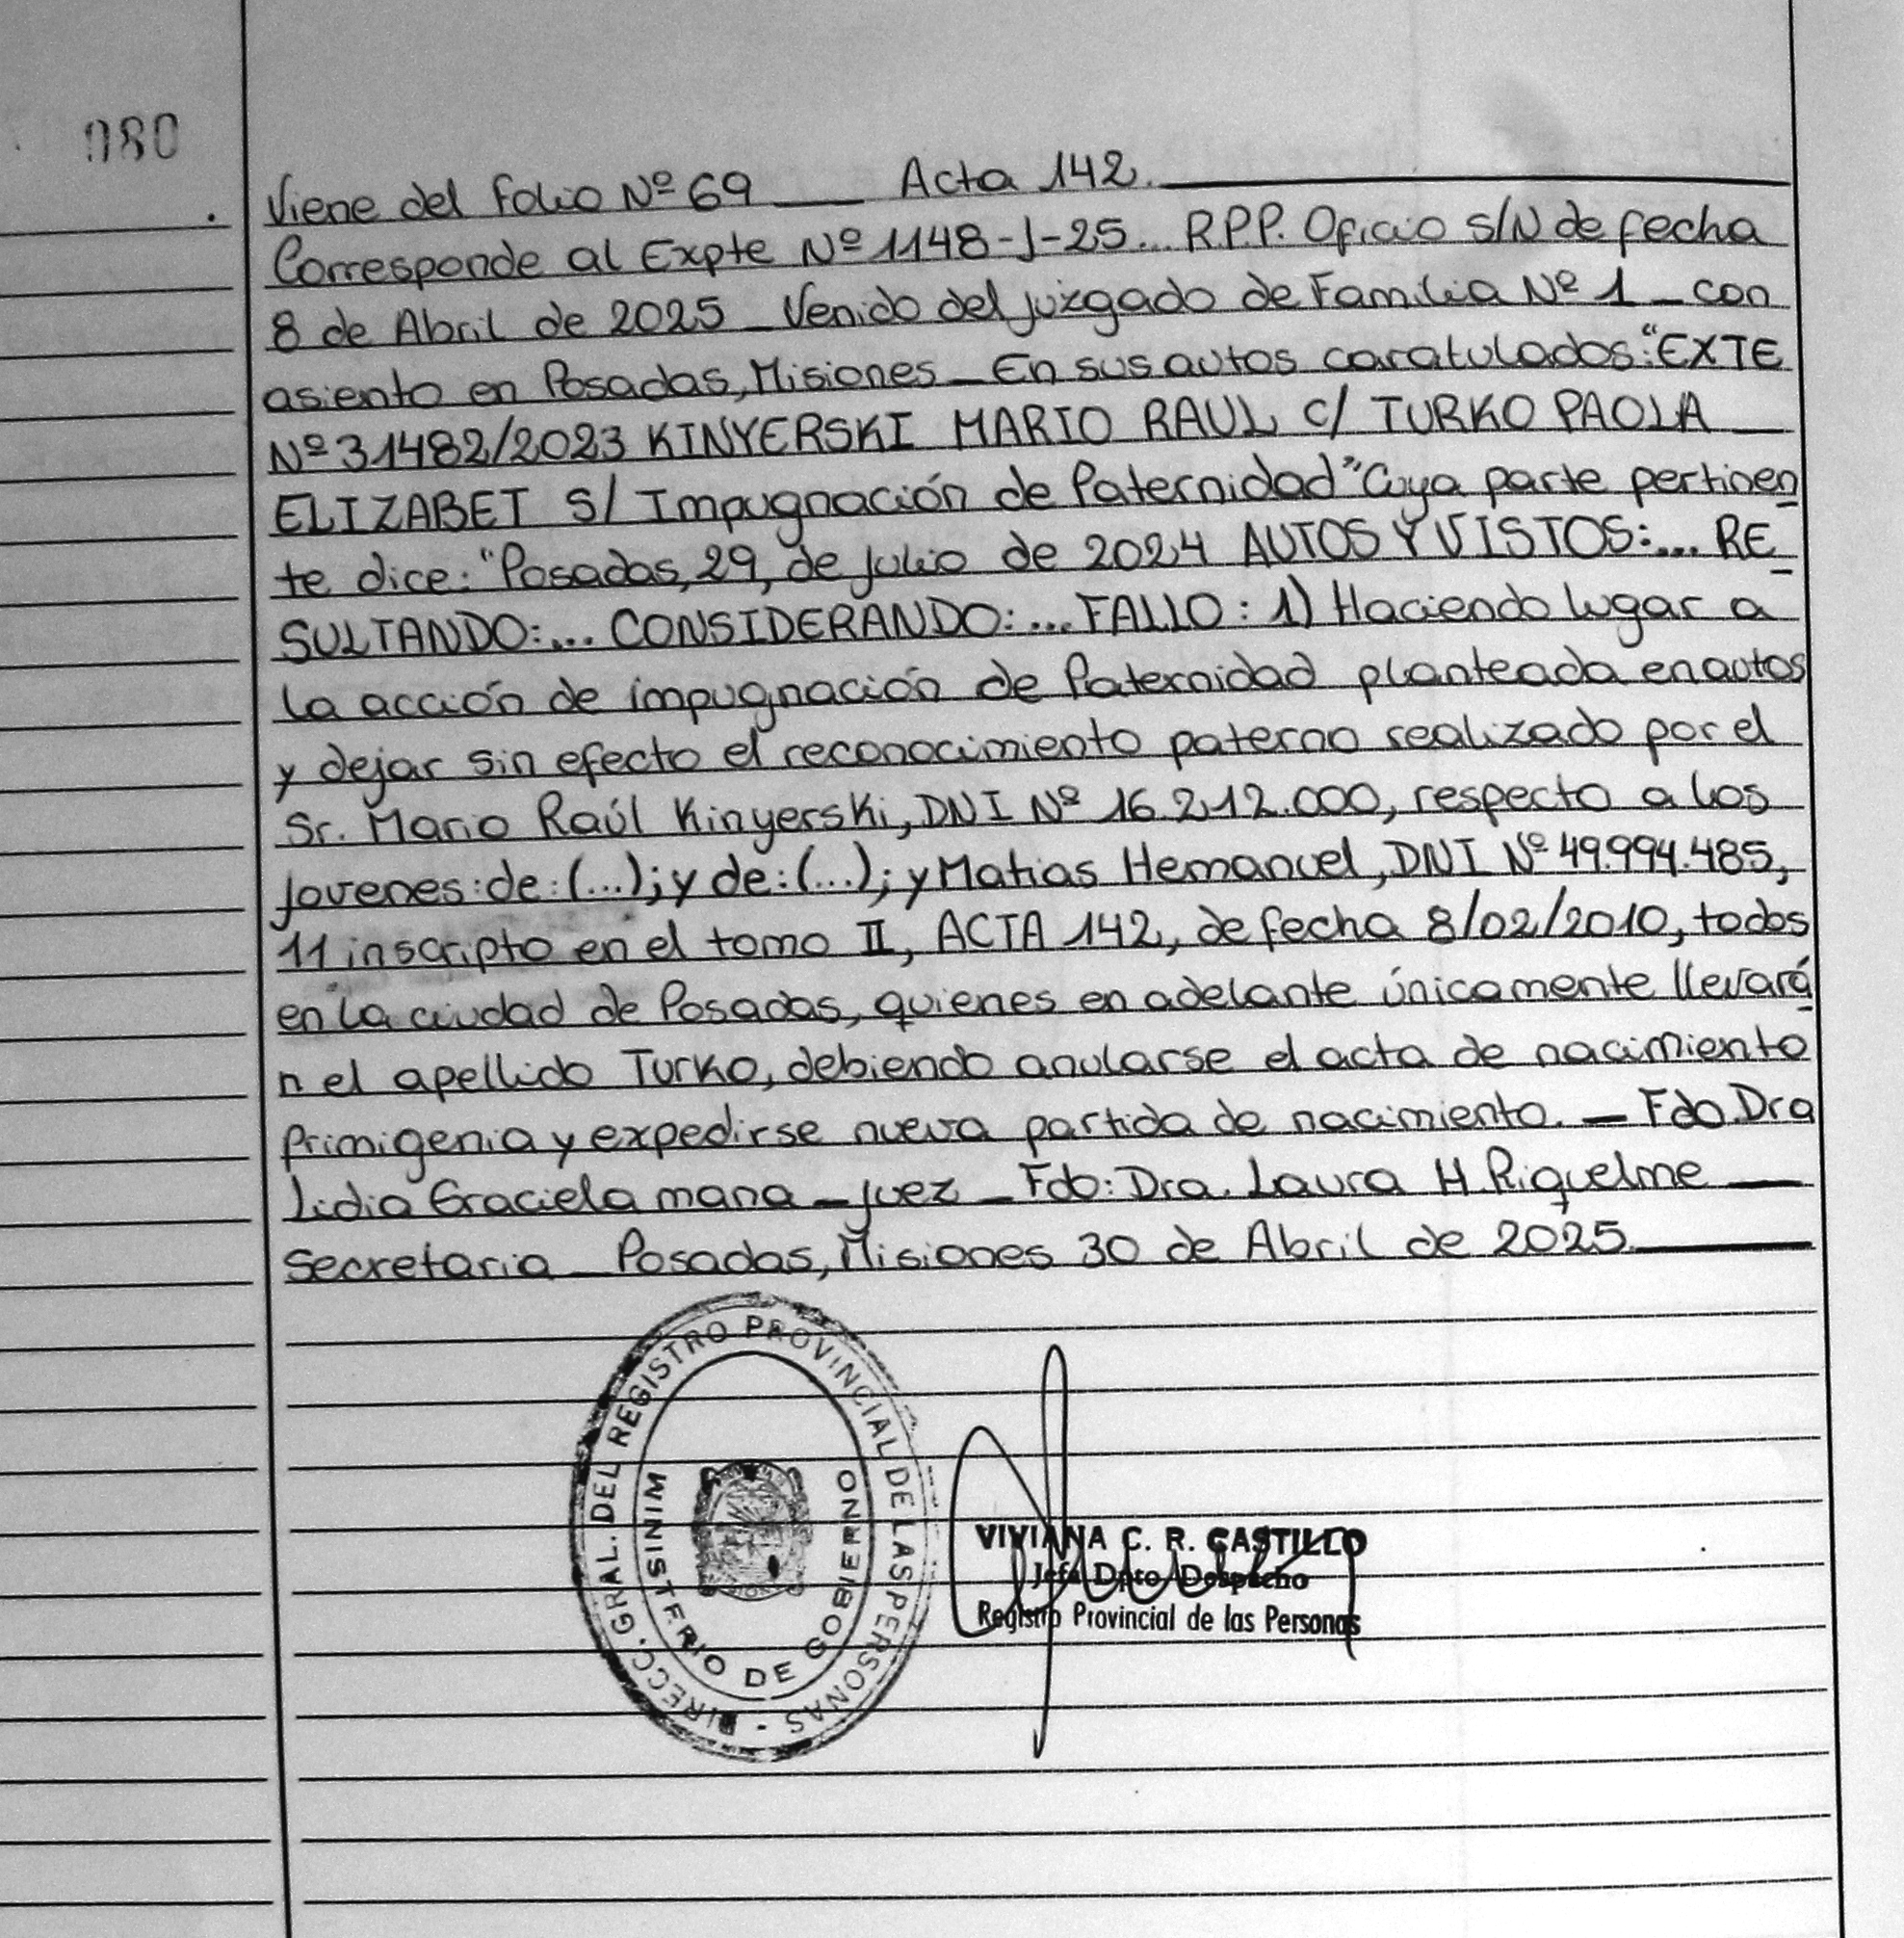 080
Viene del folio Nº 69 ___ Acta 142.
Corresponde al Expte Nº 1148-J-25... R.P.P. Oficio S/N de fecha
8 de Abril de 2025 _ Venido del juzgado de Familia Nº 1 _ con
asiento en Posadas, Misiones _ En sus autos caratulados: "EXTE
Nº 31482/2023 KINYERSKI MARIO RAUL C/ TURKO PAOLA __
ELIZABET S/ Impugnación de Paternidad" Cuya parte pertinen
te dice: "Posadas, 29, de julio de 2024 AUTOS Y VISTOS:... RE_
SULTANDO:... CONSIDERANDO:... FALLO: 1) Haciendo lugar a
la acción de impugnación de Paternidad planteada en autos
y dejar sin efecto el reconocimiento paterno realizado por el
Sr. Mario Raúl Kinyerski, DNI Nº 16.212.000, respecto a los
jovenes: de: (...); y de: (...); y Matias Hemanuel, DNI Nº 49.994.485,
11 inscripto en el tomo II, ACTA 142, de fecha 8/02/2010, todos
en la ciudad de Posadas, quienes en adelante únicamente llevará
n el apellido Turko, debiendo anularse el acta de nacimiento
Primigenia y expedirse nueva partida de nacimiento. _ Fdo. Dra
Lidia Graciela mana _ juez _ Fdo: Dra. Laura H. Riquelme __
Secretaria _ Posadas, Misiones 30 de Abril de 2025.
DIRECC. GRAL. DEL REGISTRO PROVINCIAL DE LAS PERSONAS -
MINISTERIO DE GOBIERNO
VIVIANA C. R. CASTILLO
Jefa Dpto Despacho
Registro Provincial de las Personas